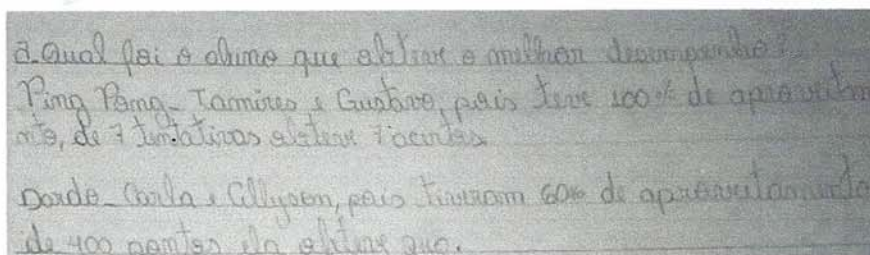 a. Qual foi o aluno que obteve o melhor desempenho?
Ping Pong - Tamires e Gustavo, pois teve 100% de aproveitam
nto, de 7 tentativas obteve 7 acertos.
Dardo - Carla e Allyson, pois tiveram 60% de aproveitamento
de 400 pontos ela obteve